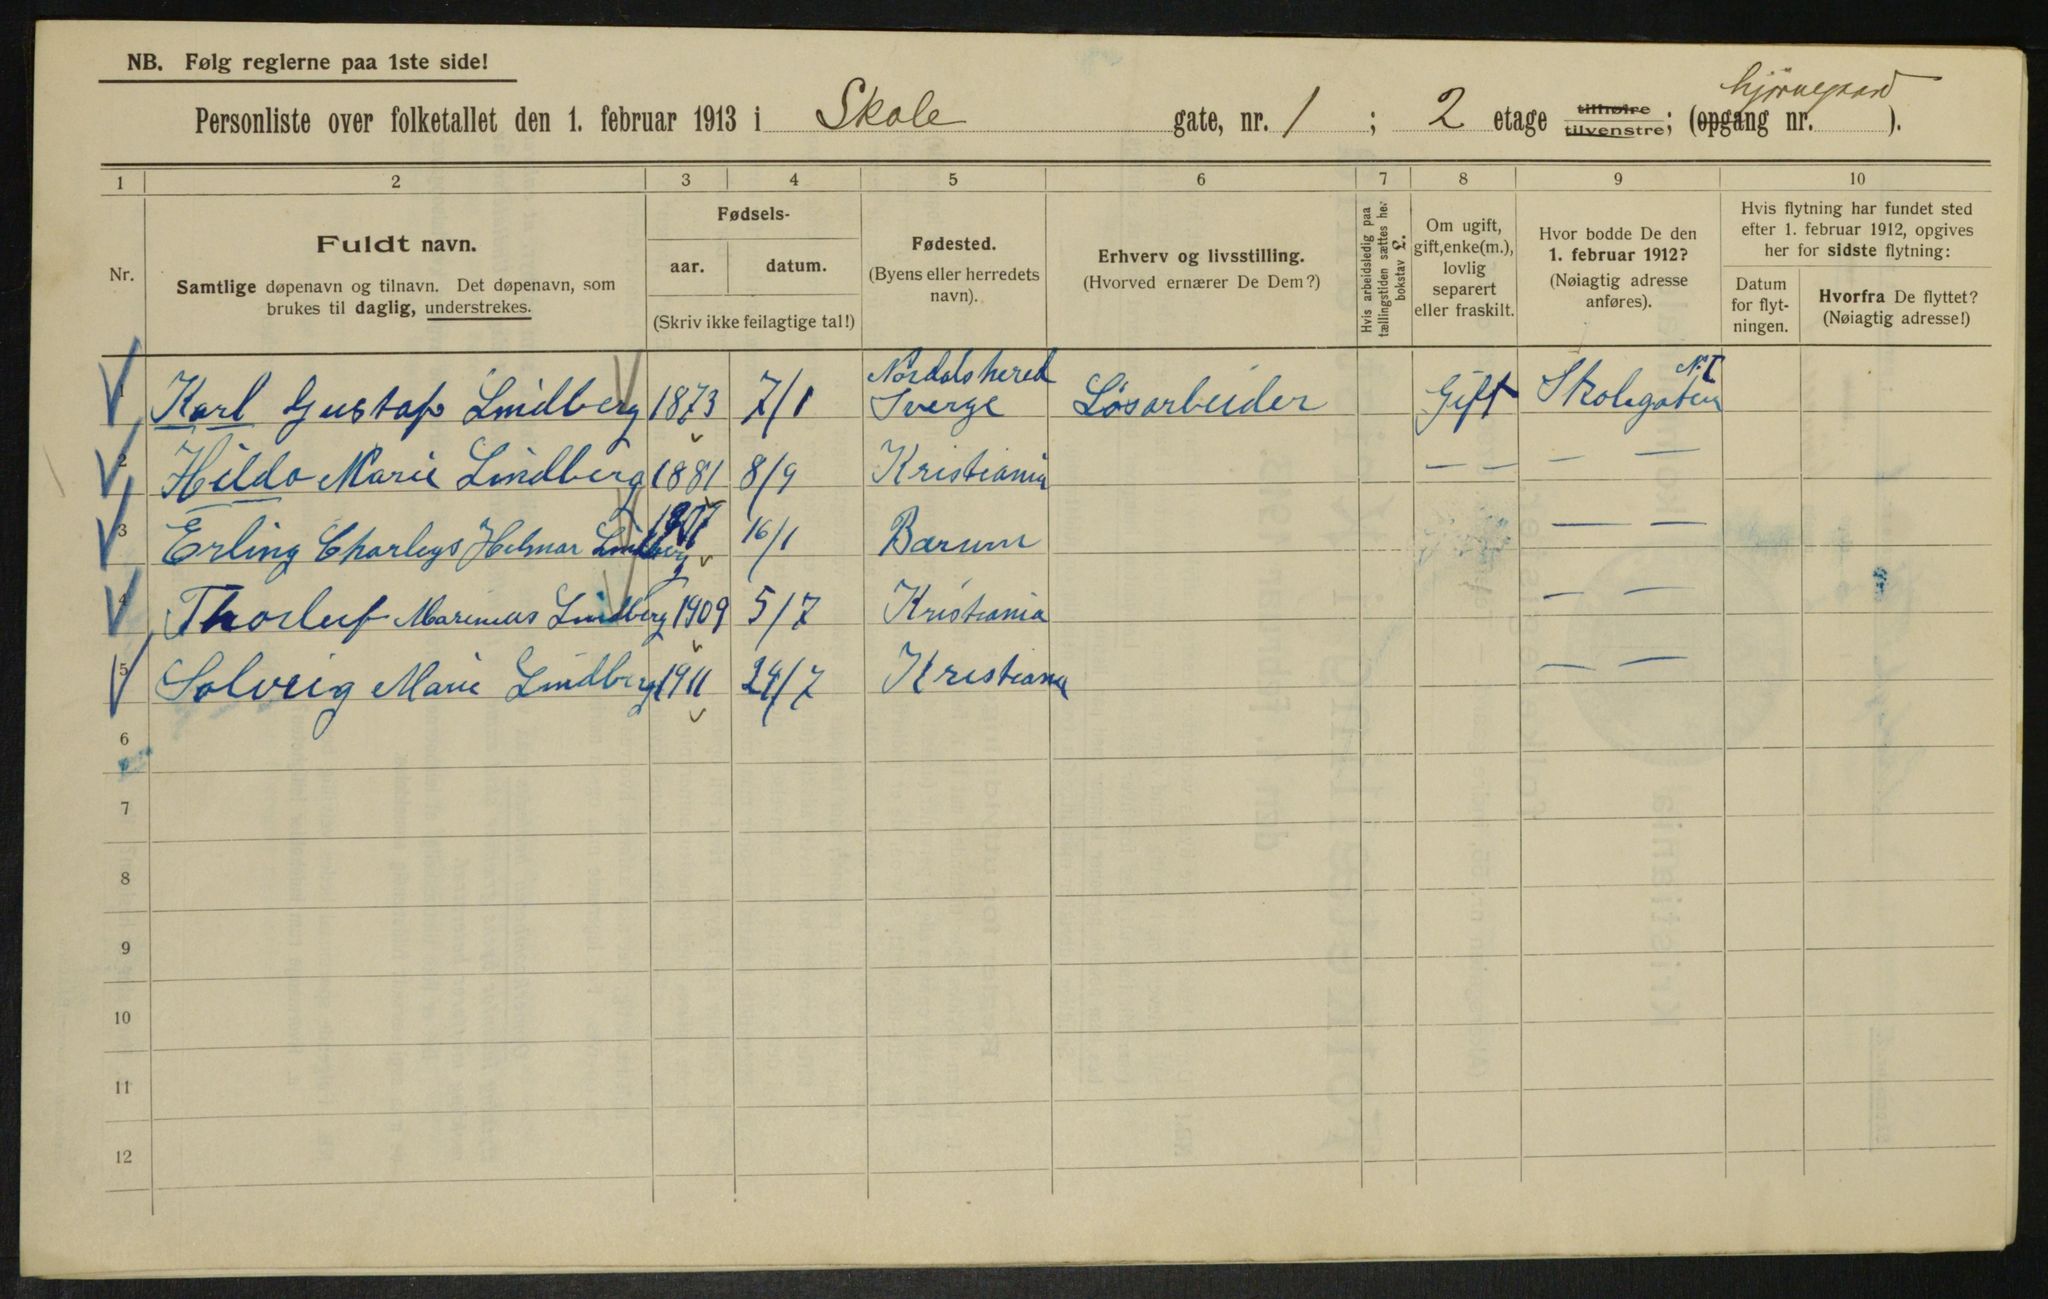 NB. Følg reglerne paa 1ste side!
Personliste over folketallet den 1. februar 1913 i Skole gate, nr. 1 ; 2 etage tilhøire tilvenstre; (opgang nr. ).
1 2 3 4 5 6 7 8 9 10
Nr.
Fuldt navn.
Samtlige døpenavn og tilnavn. Det døpenavn, som
brukes til daglig, understrekes.
Fødsels-
aar. datum.
(Skriv ikke feilagtige tal!)
Fødested.
(Byens eller herredets
navn).
Erhverv og livsstilling.
(Hvorved ernærer De Dem?)
Hvis arbeidsledig paa
tællingstiden sættes her
bokstav £.
Om ugift,
gift, enke(m.),
lovlig
separert
eller fraskilt.
Hvor bodde De den
1. februar 1912?
(Nøiagtig adresse
anføres).
Hvis flytning har fundet sted
efter 1. februar 1912, opgives
her for sidste flytning:
Datum
for flyt-
ningen.
Hvorfra De flyttet?
(Nøiagtig adresse!)
1 Karl Gustaf Lindberg 1873 7/1 Nordals hered Sverge Løsarbeider Gift Skolegaten N. 1
2 Hilda Marie Lindberg 1881 8/9 Kristiania — — — —
3 Erling Charleys Helmar Lindberg 1907 16/1 Bærum — —
4 Thorleif Marenius Lindberg 1909 5/7 Kristiania — —
5 Solveig Marie Lindberg 1911 24/7 Kristiania — —
6
7
8
9
10
11
12